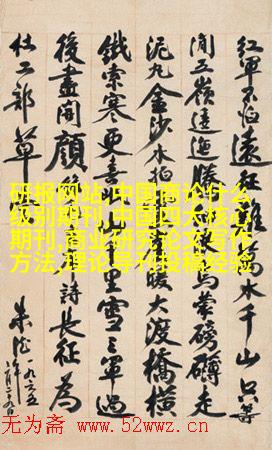 紅軍不怕遠征難萬水千山只等
閒五嶺逶迤騰蒙磅礴走
泥丸金沙水拍暖大渡橋橫
鐵索寒更喜里雪三軍過
後盡開顏詩長征為
杜工部草
朱德 一九六五
研报网站,中国商论什么
级别期刊,中国四大核心
期刊,商业研究论文写作
方法,理论导刊投稿经验
无为斋 www.52wwz.cn